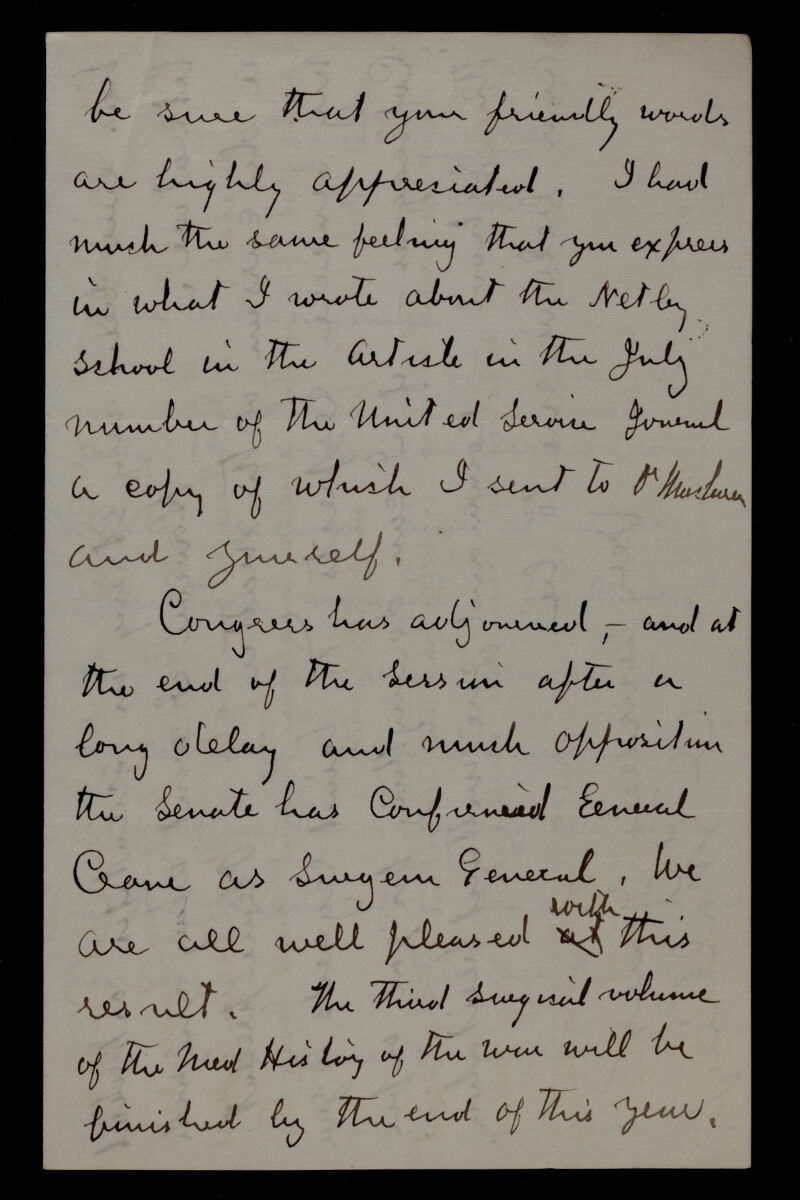 be sure that your friendly words
are highly appreciated. I had
much the same feeling that you express
in what I wrote about the Netley
School in the Article in the July
number of the United Service Journal
a copy of which I sent to Dr
and yourself.
Congress has adjourned, – and at
the end of the Session after a
long delay and much opposition
the Senate has Confirmed General
Crane as Surgeon General. We
are all well pleased at with this
result. The third surgical volume
of the Med History of the war will be
finished by the end of this year.